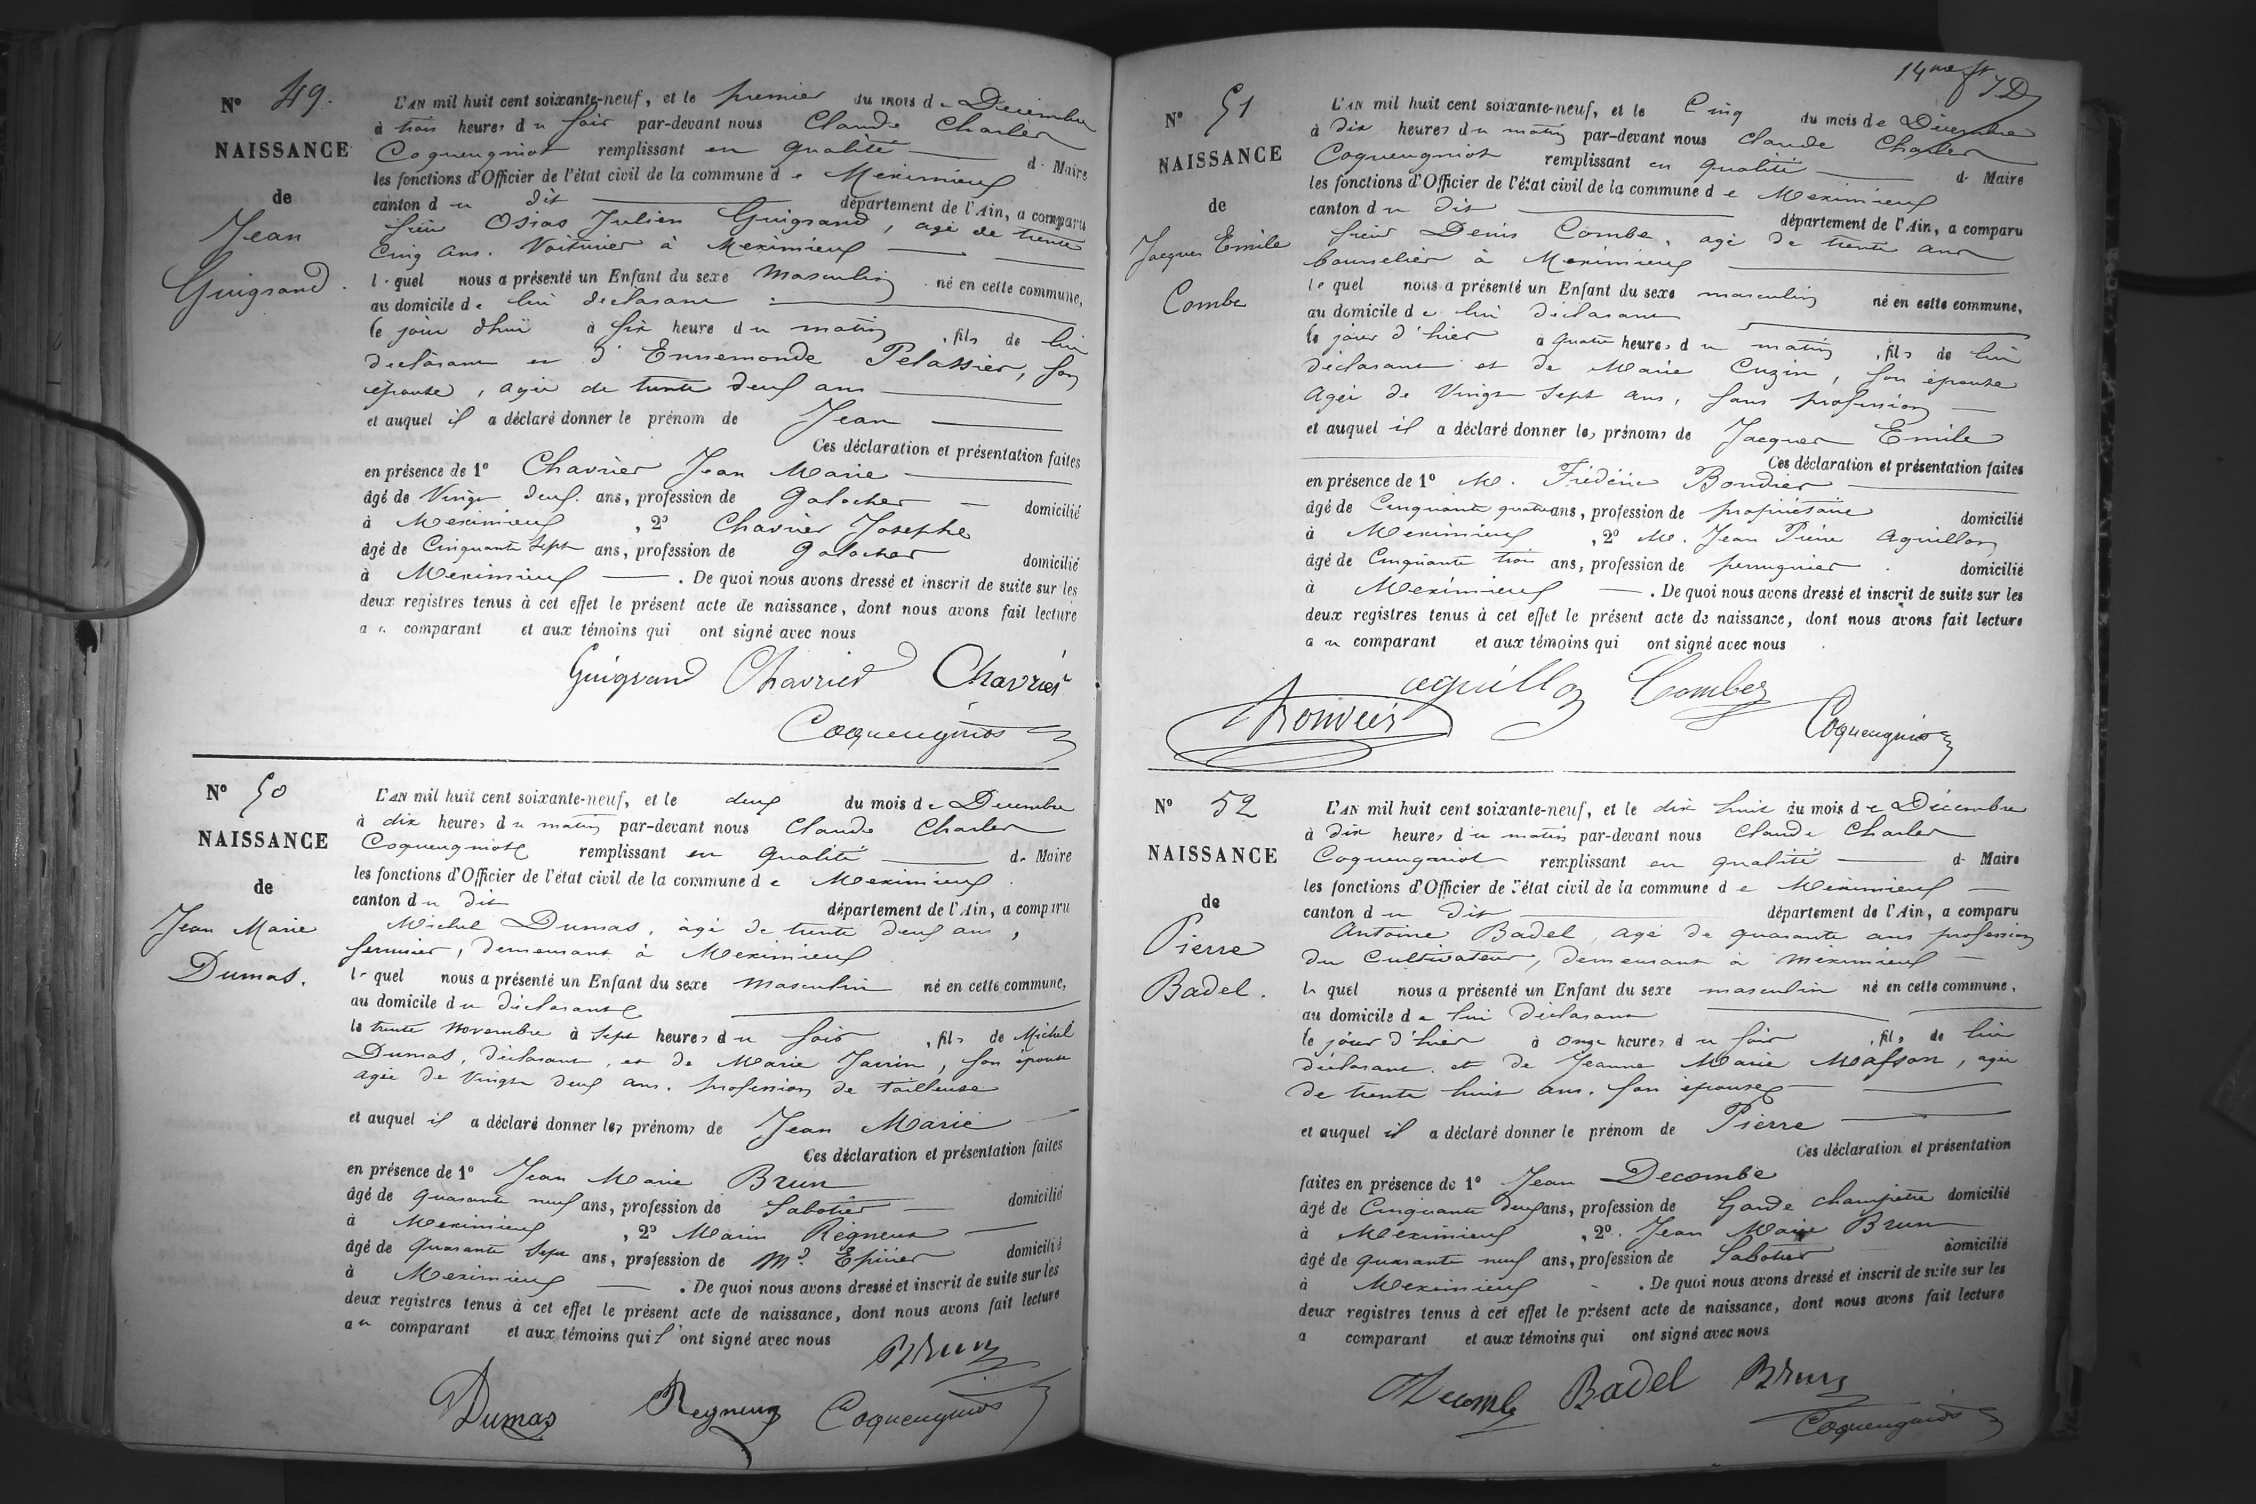 N° 49.
NAISSANCE
de
Jean
Guigrand.
L'AN mil huit cent soixante-neuf, et le premier du mois de Décembre
à trois heures du soir par-devant nous Claude Charles
Coqueugniot remplissant en qualité de Maire
les fonctions d'Officier de l'état civil de la commune de Meximieux
canton du dit département de l'Ain, a comparu
sieur Osias Julien Guigrand, agé de trente
cinq ans. Voiturier à Meximieux
lequel nous a présenté un Enfant du sexe masculin né en cette commune,
au domicile de lui déclarant
le jour d'hui à six heure du matin, fils de lui
déclarant et d'Ennemonde Pelassier, son
épouse, agée de trente deux ans
et auquel il a déclaré donner le prénom de Jean
Ces déclaration et présentation faites
en présence de 1° Chavrier Jean Marie
âgé de Vingt deux ans, profession de Galocher domicilié
à Meximieux, 2° Chavrier Josephe
âgé de Cinquante sept ans, profession de Galocher domicilié
à Meximieux. De quoi nous avons dressé et inscrit de suite sur les
deux registres tenus à cet effet le présent acte de naissance, dont nous avons fait lecture
au comparant et aux témoins qui ont signé avec nous
Guigrand Chavrier Chavrier
Coqueugniot
N° 50
NAISSANCE
de
Jean Marie
Dumas.
L'AN mil huit cent soixante-neuf, et le deux du mois de Décembre
à dix heures du matin par-devant nous Claude Charles
Coqueugniot remplissant en qualité de Maire
les fonctions d'Officier de l'état civil de la commune de Meximieux
canton du dit département de l'Ain, a comparu
Michel Dumas, âgé de trente deux ans,
serrurier, demeurant à Meximieux
lequel nous a présenté un Enfant du sexe masculin né en cette commune,
au domicile du déclarant
le trente novembre à sept heures du soir, fils de Michel
Dumas, déclarant, et de Marie Javrin, son épouse
agée de vingt deux ans. profession de tailleuse
et auquel il a déclaré donner les prénoms de Jean Marie
Ces déclaration et présentation faites
en présence de 1° Jean Marie Brun
âgé de quarante neuf ans, profession de Sabotier domicilié
à Meximieux, 2° Marin Régneux
âgé de Quarante sept ans, profession de Md Epicier domicilié
à Meximieux. De quoi nous avons dressé et inscrit de suite sur les
deux registres tenus à cet effet le présent acte de naissance, dont nous avons fait lecture
au comparant et aux témoins qui ont signé avec nous
Brun
Dumas Regneux Coqueugniot
14me
N° 51
NAISSANCE
de
Jacques Emile
Combe
L'AN mil huit cent soixante-neuf, et le Cinq du mois de Décembre
à Dix heures du matin par-devant nous Claude Charles
Coqueugniot remplissant en qualité de Maire
les fonctions d'Officier de l'état civil de la commune de Meximieux
canton du dit département de l'Ain, a comparu
sieur Denis Combe, agé de trente ans
bourrelier à Meximieux
lequel nous a présenté un Enfant du sexe masculin né en cette commune,
au domicile de lui déclarant
le jour d'hier à quatre heures du matin, fils de lui
déclarant et de Marie Cuzin, son épouse
Agée de Vingt sept ans, sans profession
et auquel il a déclaré donner les prénoms de Jacques Emile
Ces déclaration et présentation faites
en présence de 1° M. Frédéric Bondier
âgé de Cinquante quatre ans, profession de propriétaire domicilié
à Meximieux, 2° M. Jean Pierre Aguillon
âgé de Cinquante trois ans, profession de perruquier. domicilié
à Meximieux. De quoi nous avons dressé et inscrit de suite sur les
deux registres tenus à cet effet le présent acte de naissance, dont nous avons fait lecture
au comparant et aux témoins qui ont signé avec nous
aguillon Combe
Coqueugniot
N° 52
NAISSANCE
de
Pierre
Badel.
L'AN mil huit cent soixante-neuf, et le dix huit du mois de Décembre
à Dix heures du matin par-devant nous Claude Charles
Coqueugniot remplissant en qualité de Maire
les fonctions d'Officier de l'état civil de la commune de Meximieux
canton du dit département de l'Ain, a comparu
Antoine Badel, agé de quarante ans profession
du Cultivateur, demeurant à Meximieux
lequel nous a présenté un Enfant du sexe masculin né en cette commune,
au domicile de lui déclarant
le jour d'hier à onze heures du soir, fils de lui
déclarant, et de Jeanne Marie Masson, agée
de trente huit ans. son épouse
et auquel il a déclaré donner le prénom de Pierre
Ces déclaration et présentation
faites en présence de 1° Jean Decombe
âgé de Cinquante deux ans, profession de Garde champêtre domicilié
à Meximieux, 2° Jean Marie Brun
âgé de quarante neuf ans, profession de Sabotier domicilié
à Meximieux. De quoi nous avons dressé et inscrit de suite sur les
deux registres tenus à cet effet le présent acte de naissance, dont nous avons fait lecture
a comparant et aux témoins qui ont signé avec nous
Decombe Badel Brun
Coqueugniot